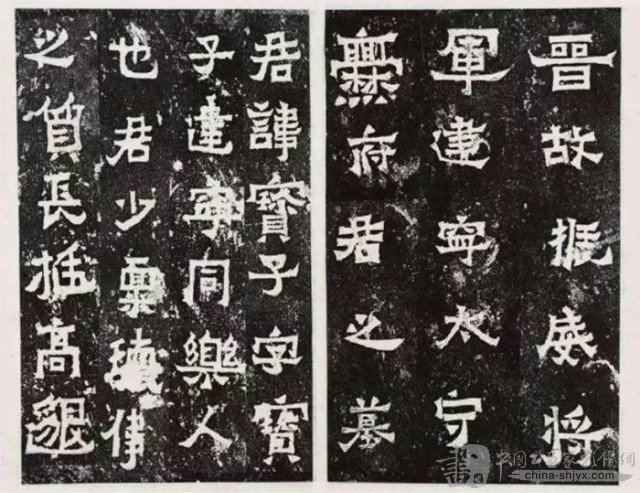 晉故振威將
軍建寧太守
爨府君之墓
君諱寶子字寶
子建寧同樂人
也君少稟瓌偉
之質長挺高邈
china-shjyx.com